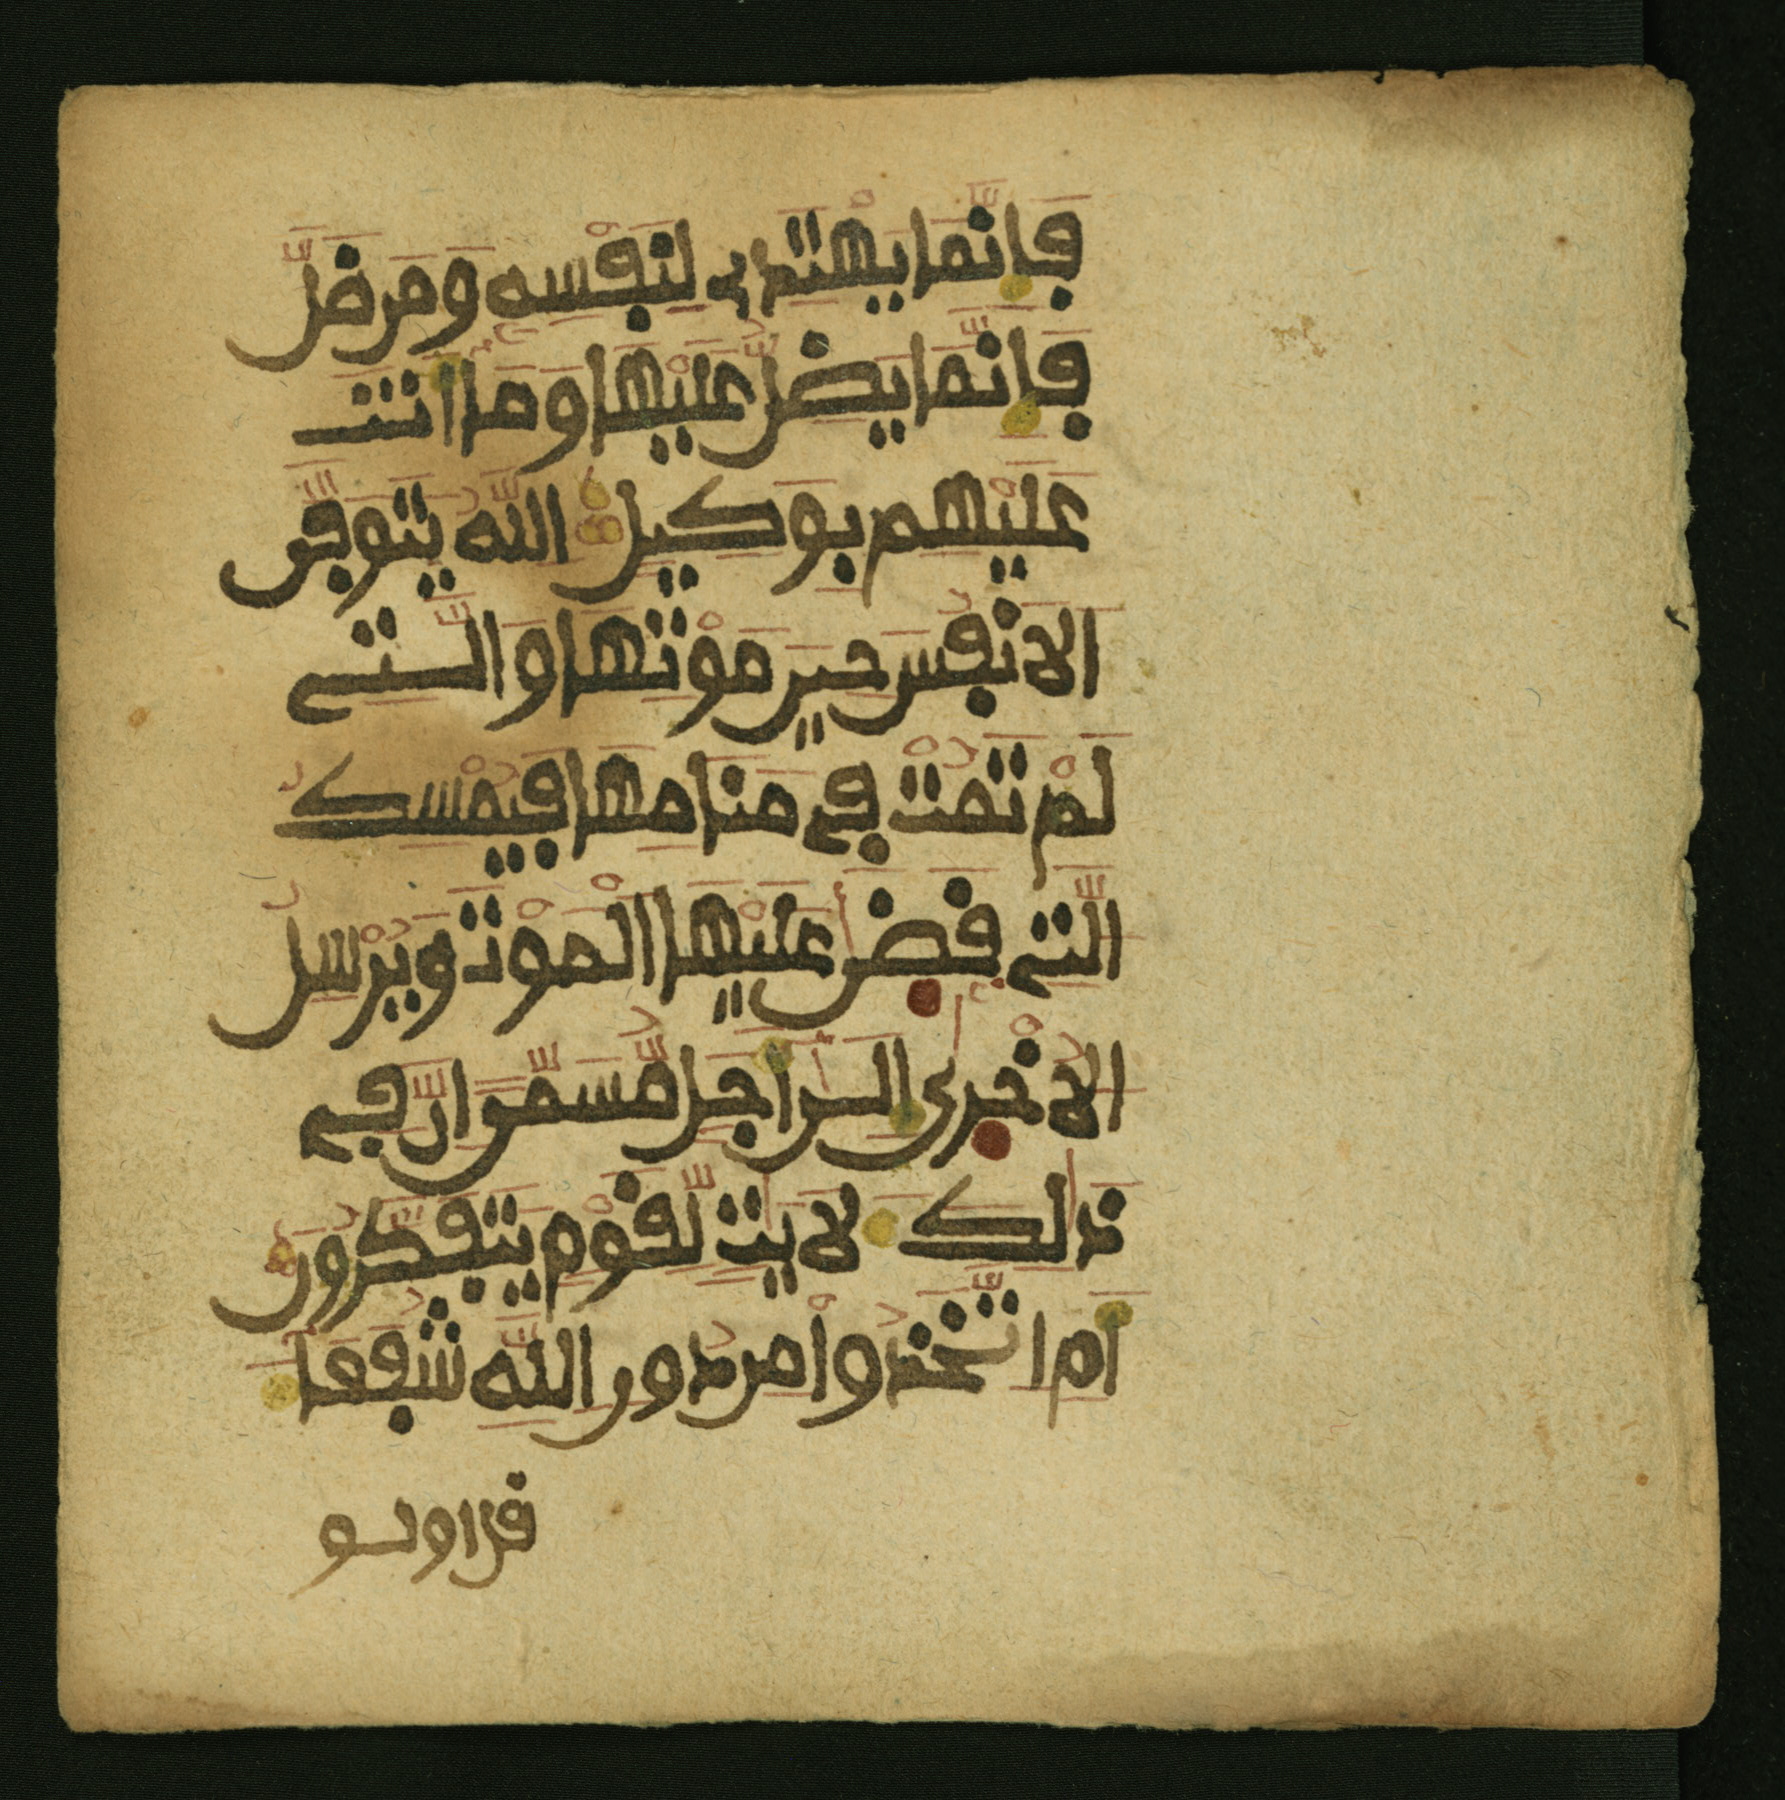 فَإِنَّمَا يَهْتَدِي لِنَفْسِهِ وَمَن ضَلَّ
فَإِنَّمَا يَضِلُّ عَلَيْهَا وَمَا أَنتَ
عَلَيْهِم بِوَكِيلٍ اللَّهُ يَتَوَفَّى
الَانفُسَ حِينَ مَوْتِهَا وَالَّتِي
لَمْ تَمُتْ فِي مَنَامِهَا فَيُمْسِكُ
الَّتِي قَضَى عَلَيْهَا الْمَوْتَ وَيُرْسِلُ
الُاخْرَى إِلَى أَجَلٍ مُّسَمًّى إِنَّ فِي
ذَلِكَ لَايَتٍ لِّقَوْمٍ يَتَفَكَّرُونَ
أَمِ اتَّخَذُوا مِن دُونِ اللَّهِ شُفَعَا
قل اولو